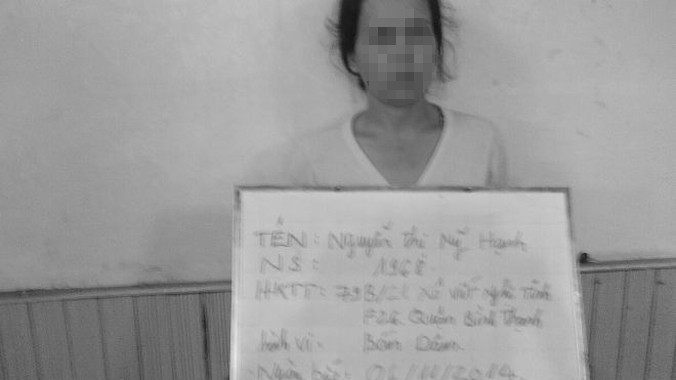 TÊN: Nguyễn thị Mỹ Hạnh
NS: 1968
HKTT: 79B/ Xô viết nghệ tĩnh
F26 Quận Bình Thạnh
Hành vi: Bán Dâm
Ngày bắt: 06/11/2014